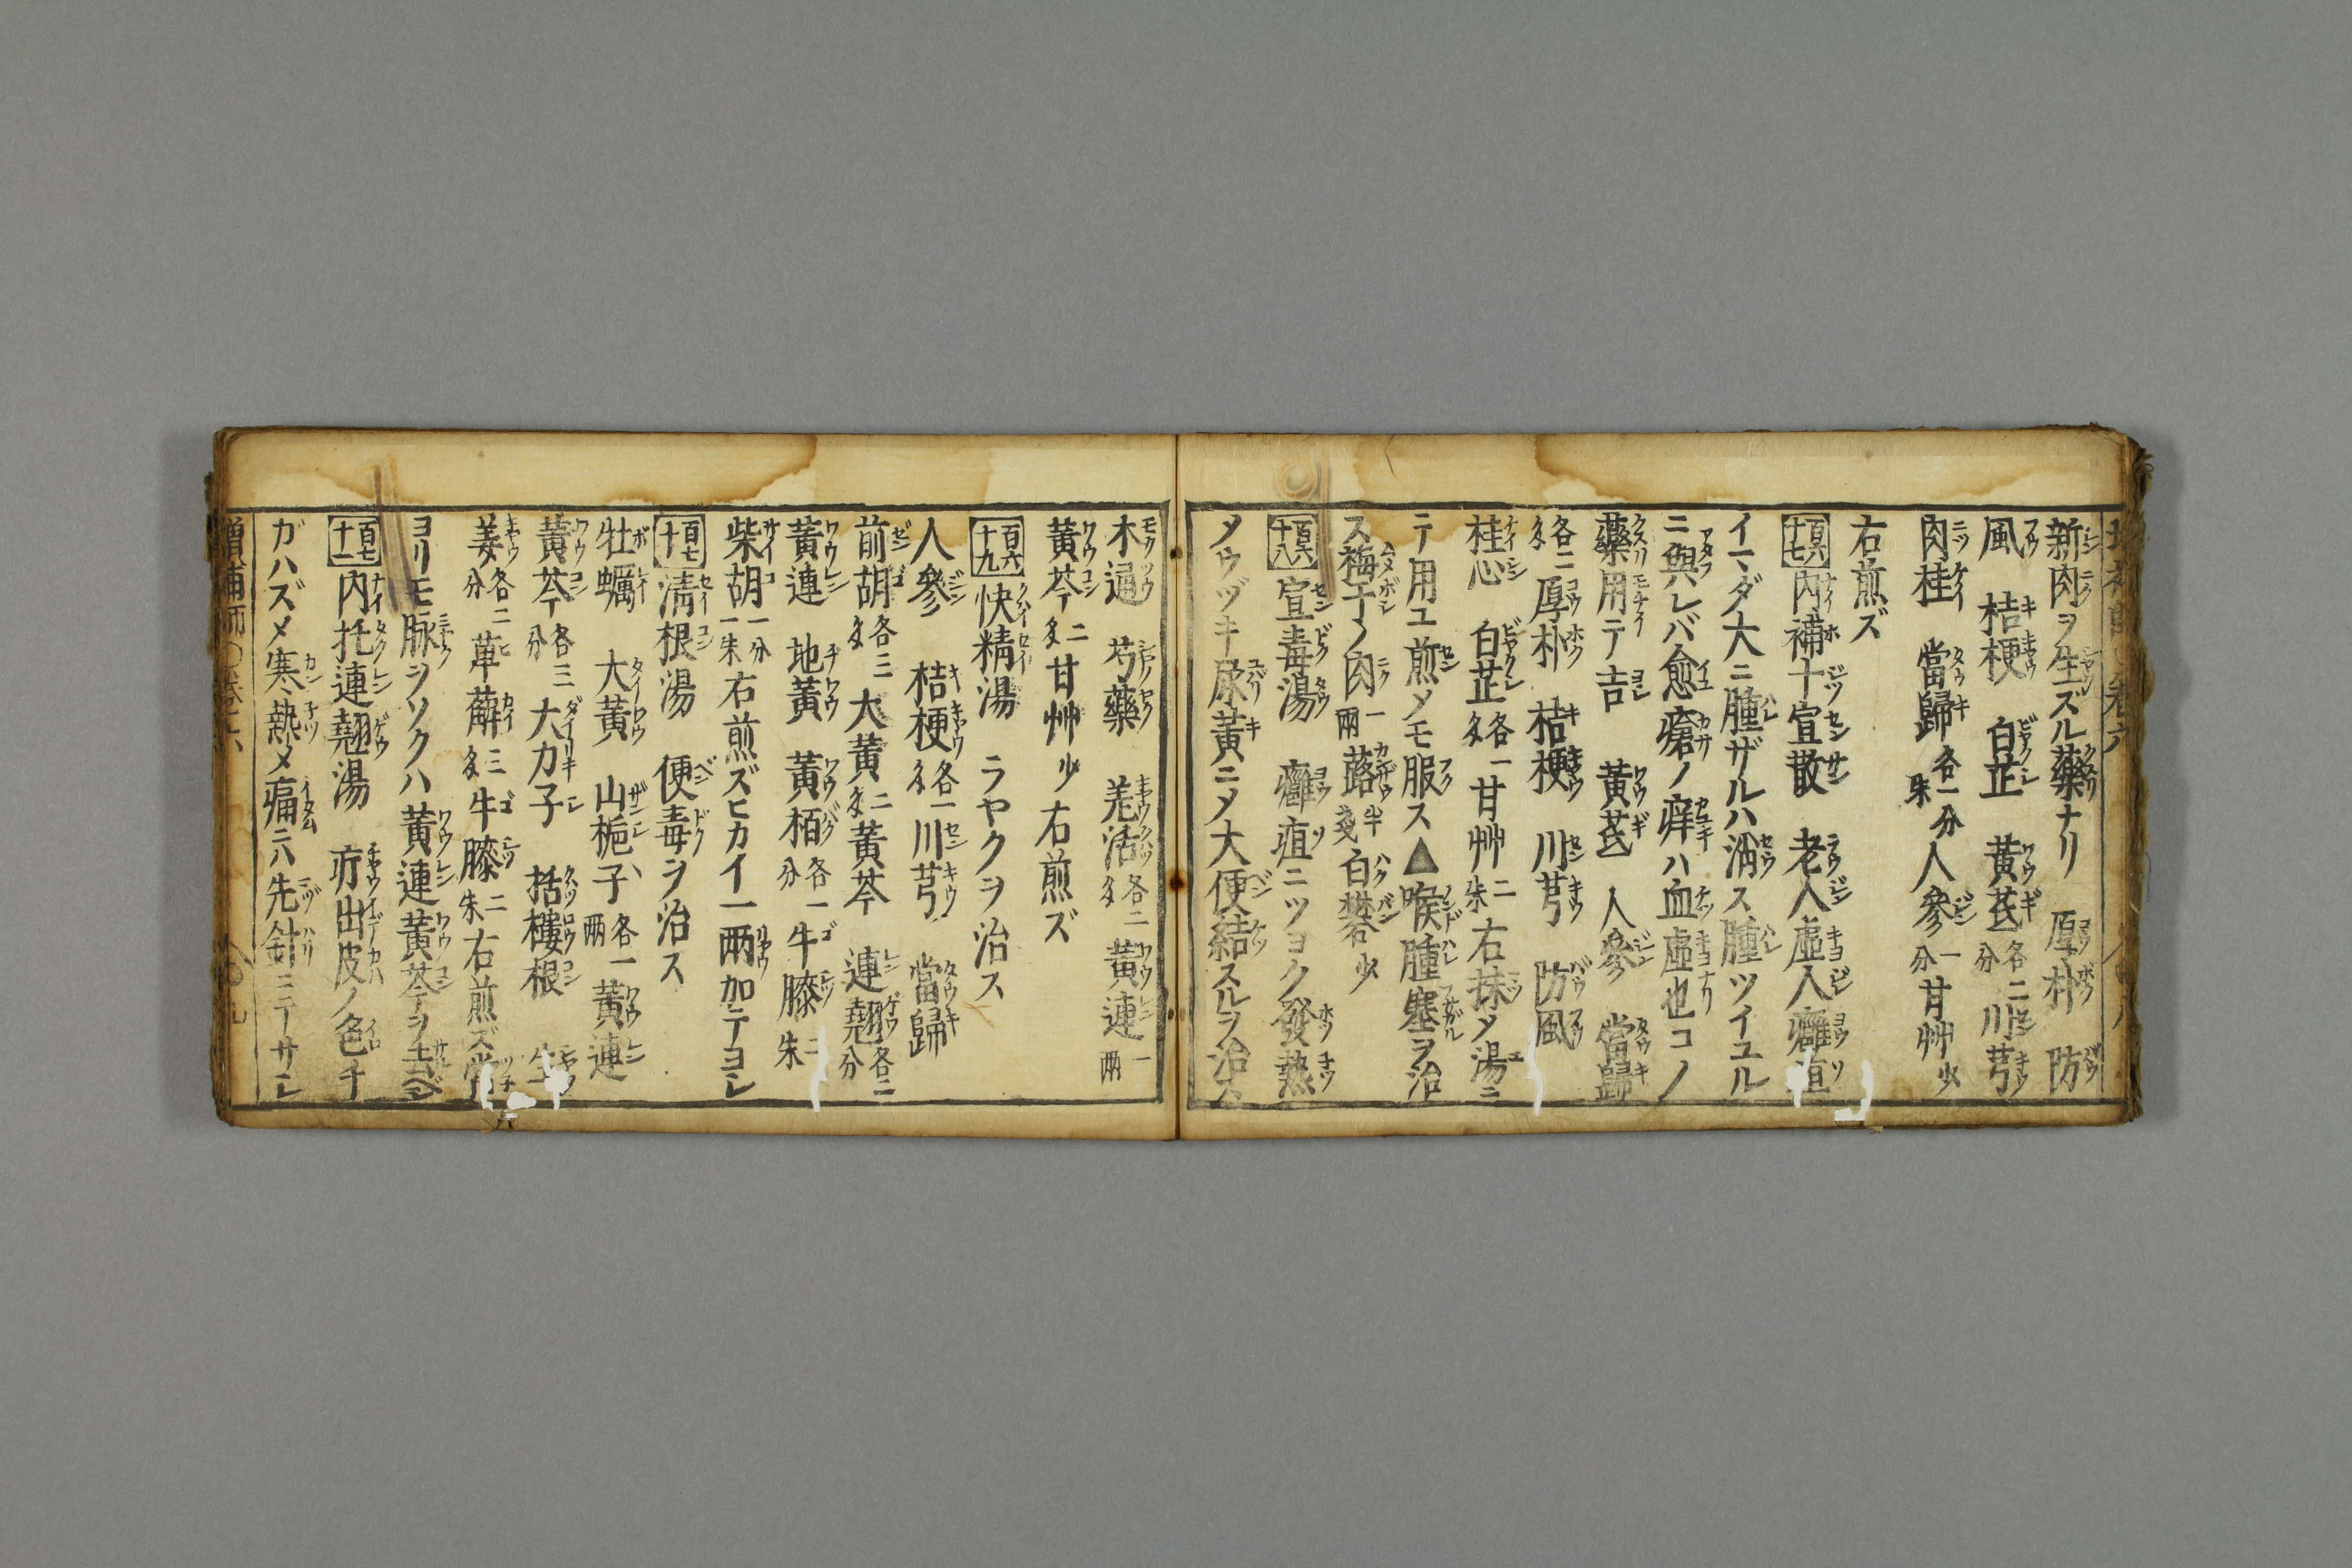 新肉ヲ生ズル藥ナリ 厚朴 防
風 桔梗 白芷 黃芪各二分 川芎
肉桂 當歸各一分朱 人參一分 甘艸少
右煎ズ
百六十七 內補十宣散 老人虛人癰疽
イマダ大ニ腫ザルハ消ス腫ツイユル
ニ與レバ愈瘡ノ痒ハ血虛也コノ
藥用テ吉 黃芪 人參 當歸
各二匁 厚朴 桔梗 川芎 防風
桂心 白芷各一匁 甘艸二朱 右抹メ湯ニ
テ用ユ煎メモ服ス▲喉腫塞ヲ治
ス梅干ノ肉一兩 白礬少
百六十八 宣毒湯 癰疽ニツヨク發熱
メウヅキ尿黃ニメ大便結スルヲ治ス
木通 芍藥 羌活各二匁 黃連一兩
黃芩二匁 甘艸少 右煎ズ
百六十九 快精湯 ラヤクヲ治ス
人參 桔梗各一匁 川芎 當歸
前胡各三匁 大黃二匁 黃芩 連翹各二分
黃連 地黃 黃栢各一分 牛膝二朱
柴胡一分一朱 右煎ズヒカイ一兩加テヨシ
百七十 淸根湯 便毒ヲ治ス
牡蠣 大黃 山梔子各一兩 黃連
黃芩各三分 大力子 括樓根 生
姜各二分 萆薢三匁 牛膝二朱 右煎ズ
ヨリモ脉ヲソクハ黃連黃芩ヲ去ベシ
百七十一 內托連翹湯 疔出皮ノ色チ
ガハズメ寒熱メ痛ニハ先針ニテサシ
增補師○卷六